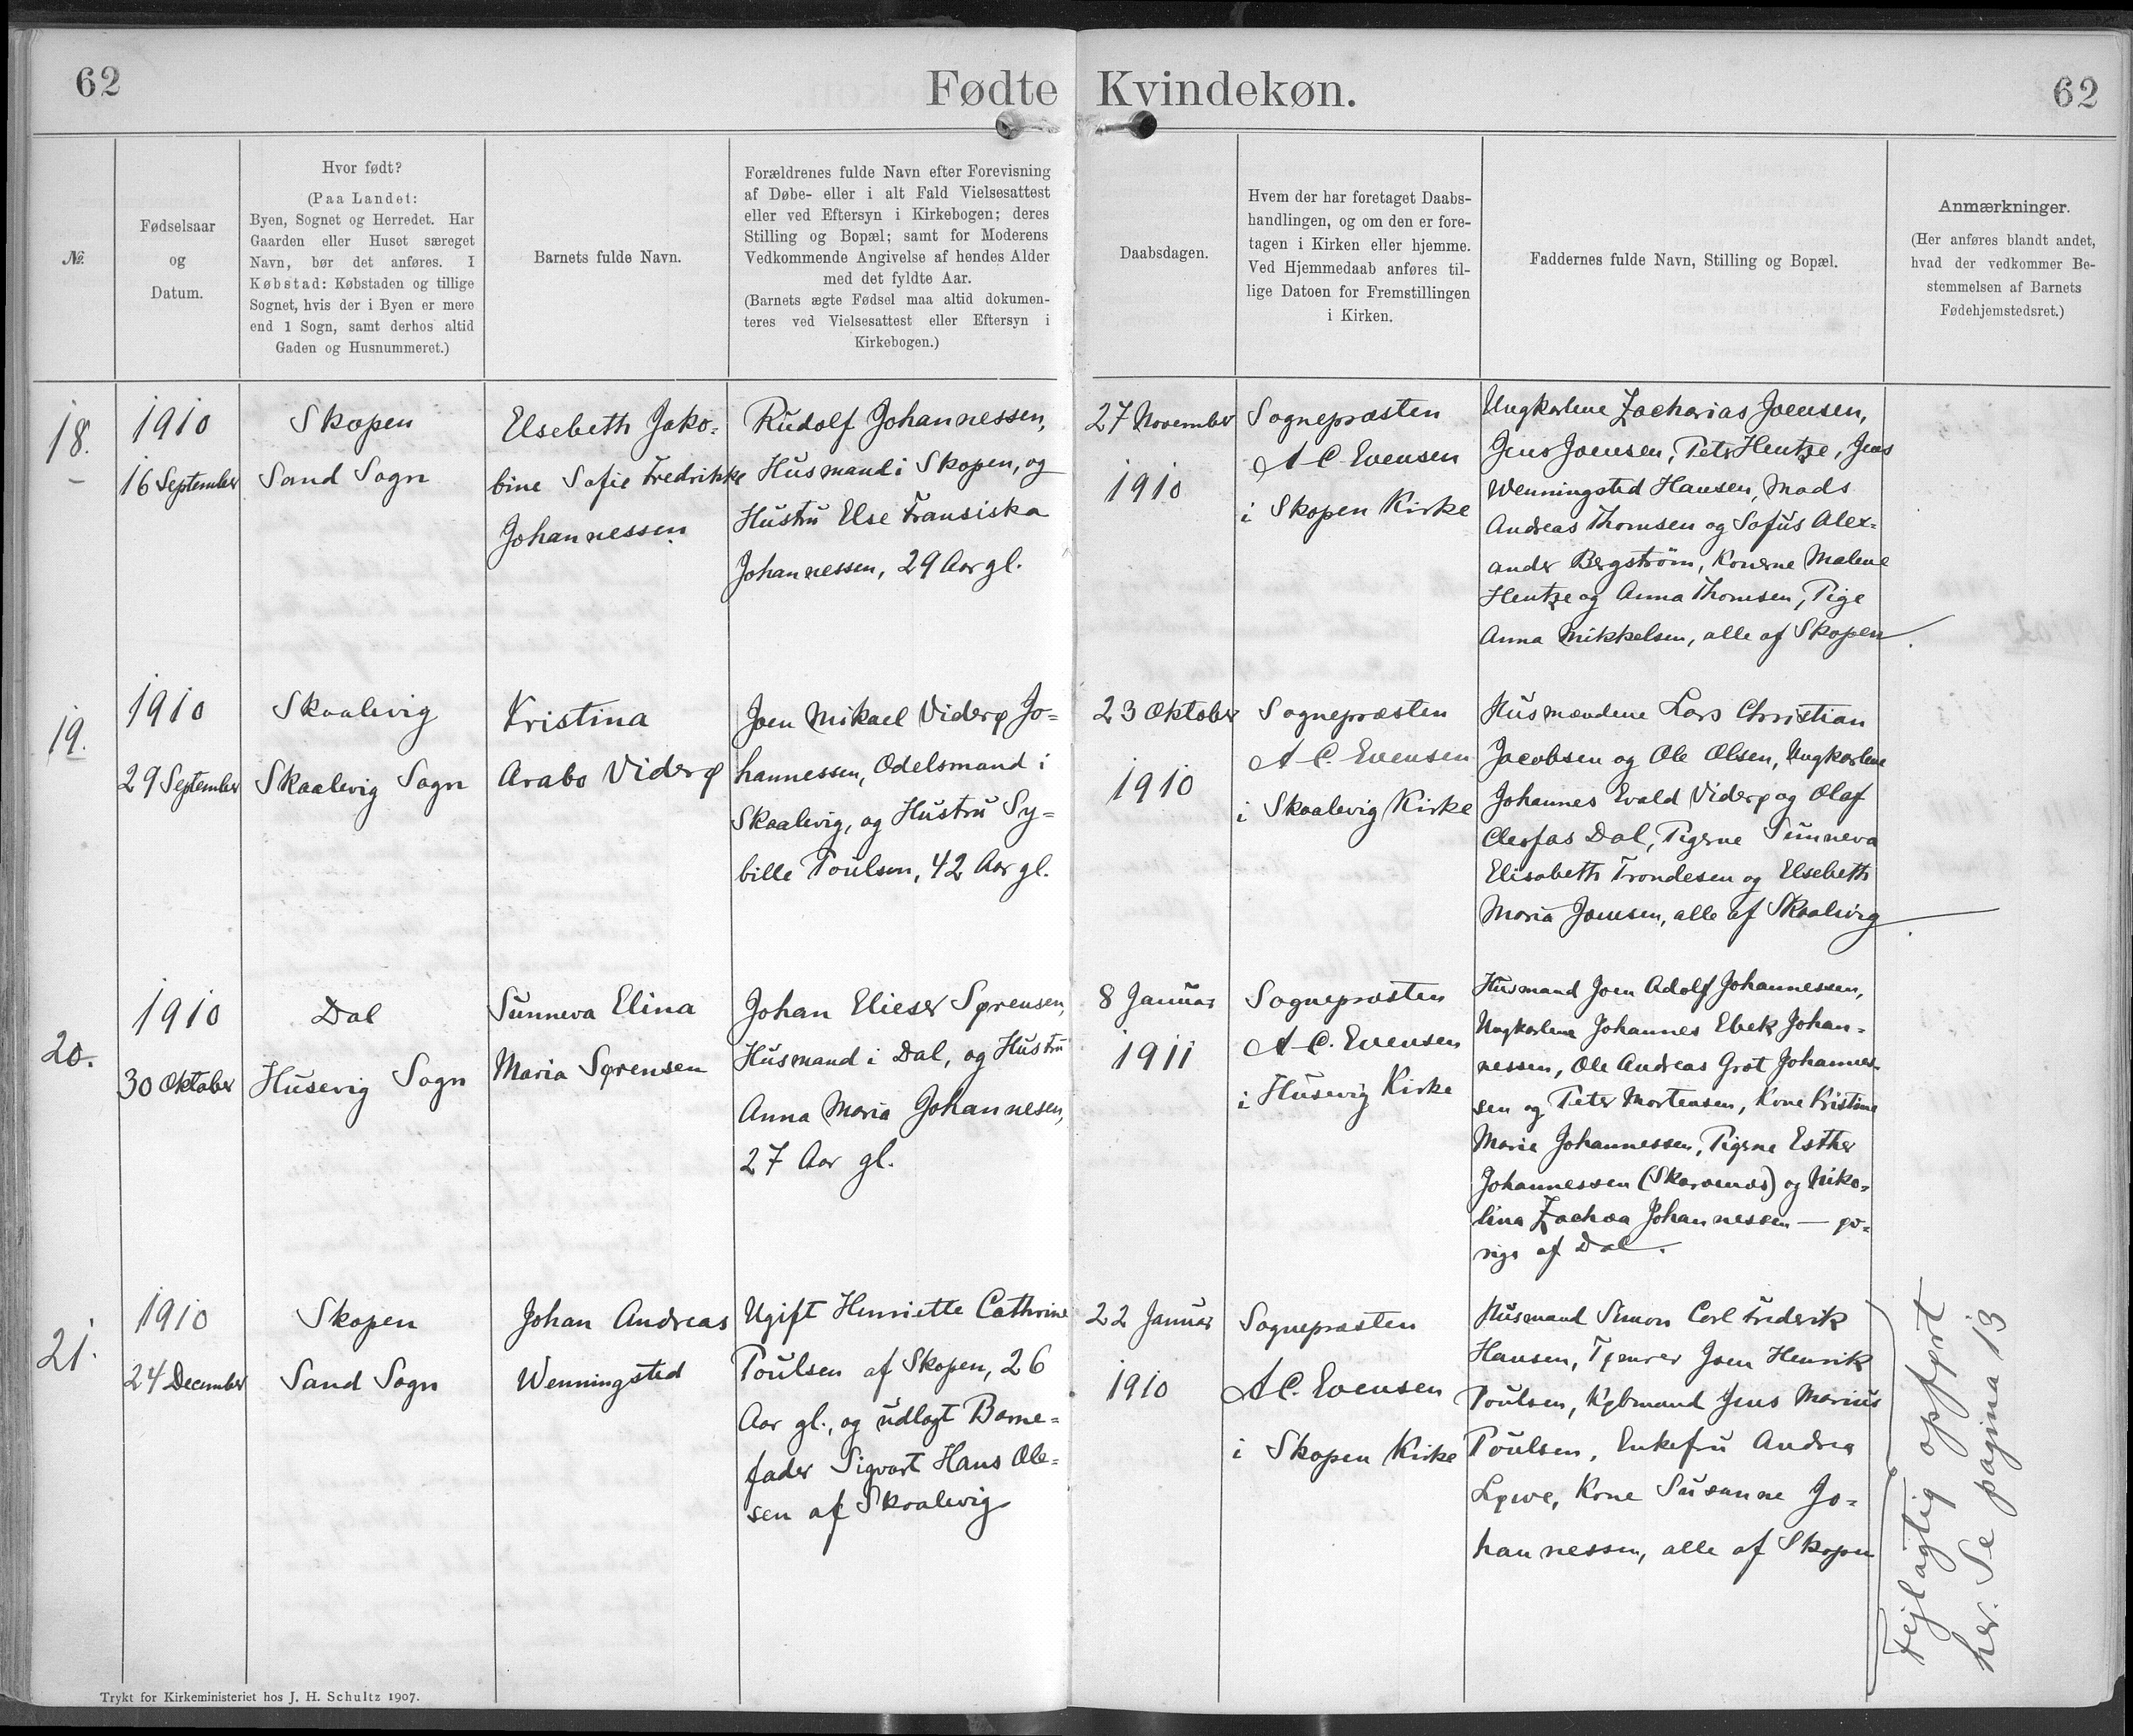 62
Fødte Kvindekøn.
62
№
Fødselsaar
og
Datum.
Hvor født?
(Paa Landet:
Byen, Sognet og Herredet. Har
Gaarden eller Huset særeget
Navn, bør det anføres. I
Købstad: Købstaden og tillige
Sognet, hvis der i Byen er mere
end 1 Sogn, samt derhos altid
Gaden og Husnummeret.)
Barnets fulde Navn.
Forældrenes fulde Navn efter Forevisning
af Døbe- eller i alt Fald Vielsesattest
eller ved Eftersyn i Kirkebogen; deres
Stilling og Bopæl; samt for Moderens
Vedkommende Angivelse af hendes Alder
med det fyldte Aar.
(Barnets ægte Fødsel maa altid dokumen-
teres ved Vielsesattest eller Eftersyn i
Kirkebogen.)
Daabsdagen.
Hvem der har foretaget Daabs-
handlingen, og om den er fore-
tagen i Kirken eller hjemme.
Ved Hjemmedaab anføres til-
lige Datoen for Fremstillingen
i Kirken.
Faddernes fulde Navn, Stilling og Bopæl.
Anmærkninger.
(Her anføres blandt andet,
hvad der vedkommer Be-
stemmelsen af Barnets
Fødehjemstedsret.)
18.
1910
16 September
Skopen
Sand Sogn
Elsebeth Jako-
bine Sofie Fredrikke
Johannessen
Rudolf Johannessen,
Husmand i Skopen, og
Hustru Else Fransiska
Johannessen, 29 Aar gl.
27 November
1910
Sognepræsten
A C Evensen
i Skopen Kirke
Ungkarlene Zacharias Joensen,
Jens Joensen, Peter Hentze, Jens
Wenningsted Hansen, Mads
Andreas Thomsen og Sofus Alex-
ander Bergström, Konerne Malene
Hentze og Anna Thomsen, Pige
Anna Mikkelsen, alle af Skopen
19.
1910
29 September
Skaalevig
Skaalevig Sogn
Kristina
Arabo Viderø
Joen Mikael Viderø Jo-
hannessen, Odelsmand i
Skaalevig, og Hustru Sy-
bille Poulsen, 42 Aar gl.
23 Oktober
1910
Sognepræsten
A C Evensen
i Skaalevig Kirke
Husmændene Lars Christian
Jacobsen og Ole Olsen, Ungkarlene
Johannes Evald Viderø og Olaf
Cleofas Dal, Pigerne Sunneva
Elisabeth Trondesen og Elsebeth
Maria Joensen, alle af Skaalevig
20.
1910
30 Oktober
Dal
Husevig Sogn
Sunneva Elina
Maria Sørensen
Johan Elieser Sørensen,
Husmand i Dal, og Hustru
Anna Maria Johannesen,
27 Aar gl.
8 Januar
1911
Sognepræsten
A C. Evensen
i Husevig Kirke
Husmand Joen Adolf Johannessen,
Ungkarlene Johannes Ebek Johan-
nessen, Ole Andreas Grot Johannes-
sen og Peter Mortensen, Kone Kristine
Marie Johannessen, Pigerne Esther
Johannessen (Skarvenæs) og Niko-
lina Zachæa Johannessen — øv-
rige af Dal.
21.
1910
24 December
Skopen
Sand Sogn
Johan Andreas
Wenningsted
Ugift Henriette Cathrine
Poulsen af Skopen, 26
Aar gl., og udlagt Barne-
fader Sigvart Hans Ole-
sen af Skaalevig
22 Januar
1910
Sognepræsten
A C. Evensen
i Skopen Kirke
Husmand Simon Carl Frederik
Hansen, Tjener Joen Henrik
Poulsen, Købmand Jens Marius
Poulsen, Enkefru Andrea
Løwe, Kone Susanne Jo-
hannessen, alle af Skopen
Fejlagtig opført
her. Se pagina 13
Trykt for Kirkeministeriet hos J. H. Schultz 1907.